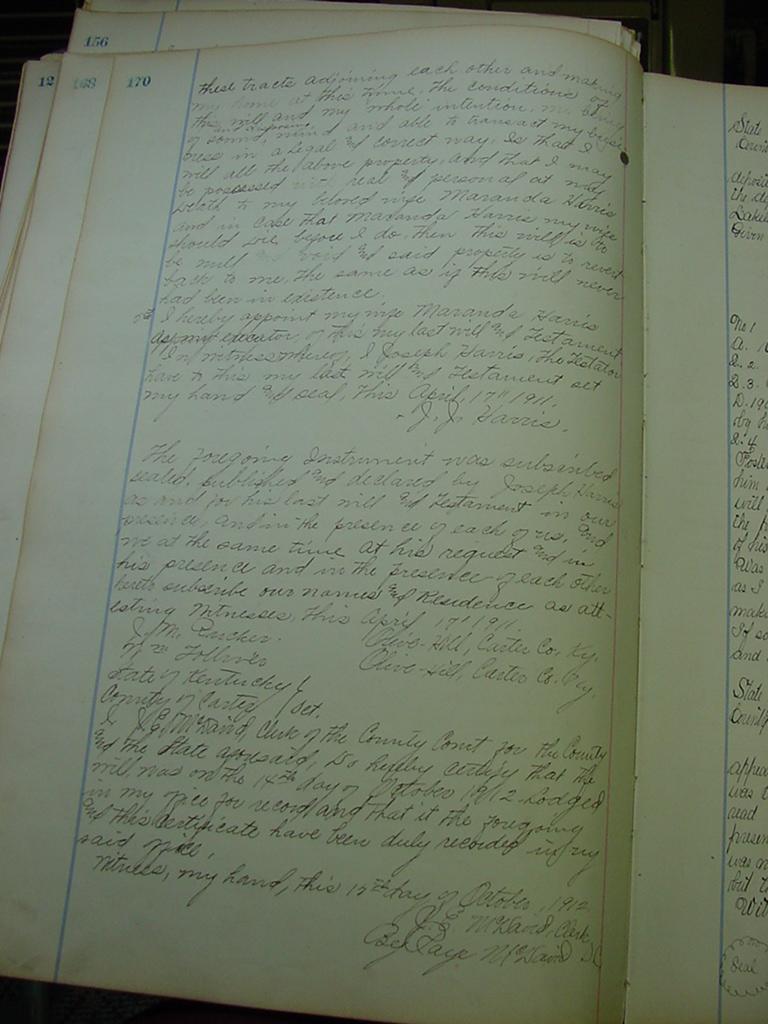 156
12 168 170
these tracts adjoining each other and making
my home at this time, the conditions of
this will and my whole intention, me being
of sound, mind and able to transact my busi
and disposing
ness in a legal and correct way, Is that I
will all the above property, and that I may
be possessed with real and personal at my
death to my beloved wife Maranda Harris
and in case that Maranda Harris my wife
should die before I do. then this will is to
be null and void and said property is to revert
back to me, the same as if this will never
had been in existence.
I hereby appoint my wife Maranda Harris
as my executor, of this my last will and Testament
In witness whereof, I Joseph Harris, the Testator
have to this my last will and Testament set
my hand and seal, This April, 17" 1911.
J. J. Harris.
The foregoing Instrument was subscribed
sealed, published and declared by Joseph Harris
as and for his last will and Testament in our
presence, and in the presence of each of us, and
we at the same time at his request and in
his presence and in the presence of each other
hereto subscribe our names and Residence as att-
esting Witnesses, this April 17" 1911.
Olive-Hill, Carter Co, Ky.
Olive-Hill, Carter Co. Ky.
State of Kentucky
County of Carter Sct.
I J.E. McDavid, Clerk of the County Court for the County
and the State aforesaid, Do hereby certify that the
will, was on the 14th day of October 1912. Lodged
in my office for record and that it the foregoing
and this certificate have been duly recorded in my
said office,
Witness, my hand, this 15th day of October, 1912.
J. E. McDavid, Clerk
By Faye McDavid D.C
State
County
the
No 1
2. 3.
by
him
will
the
of his
was
as I
make
If so
and
State
County
appea
was
read
presen
was
but
Wit
Seal